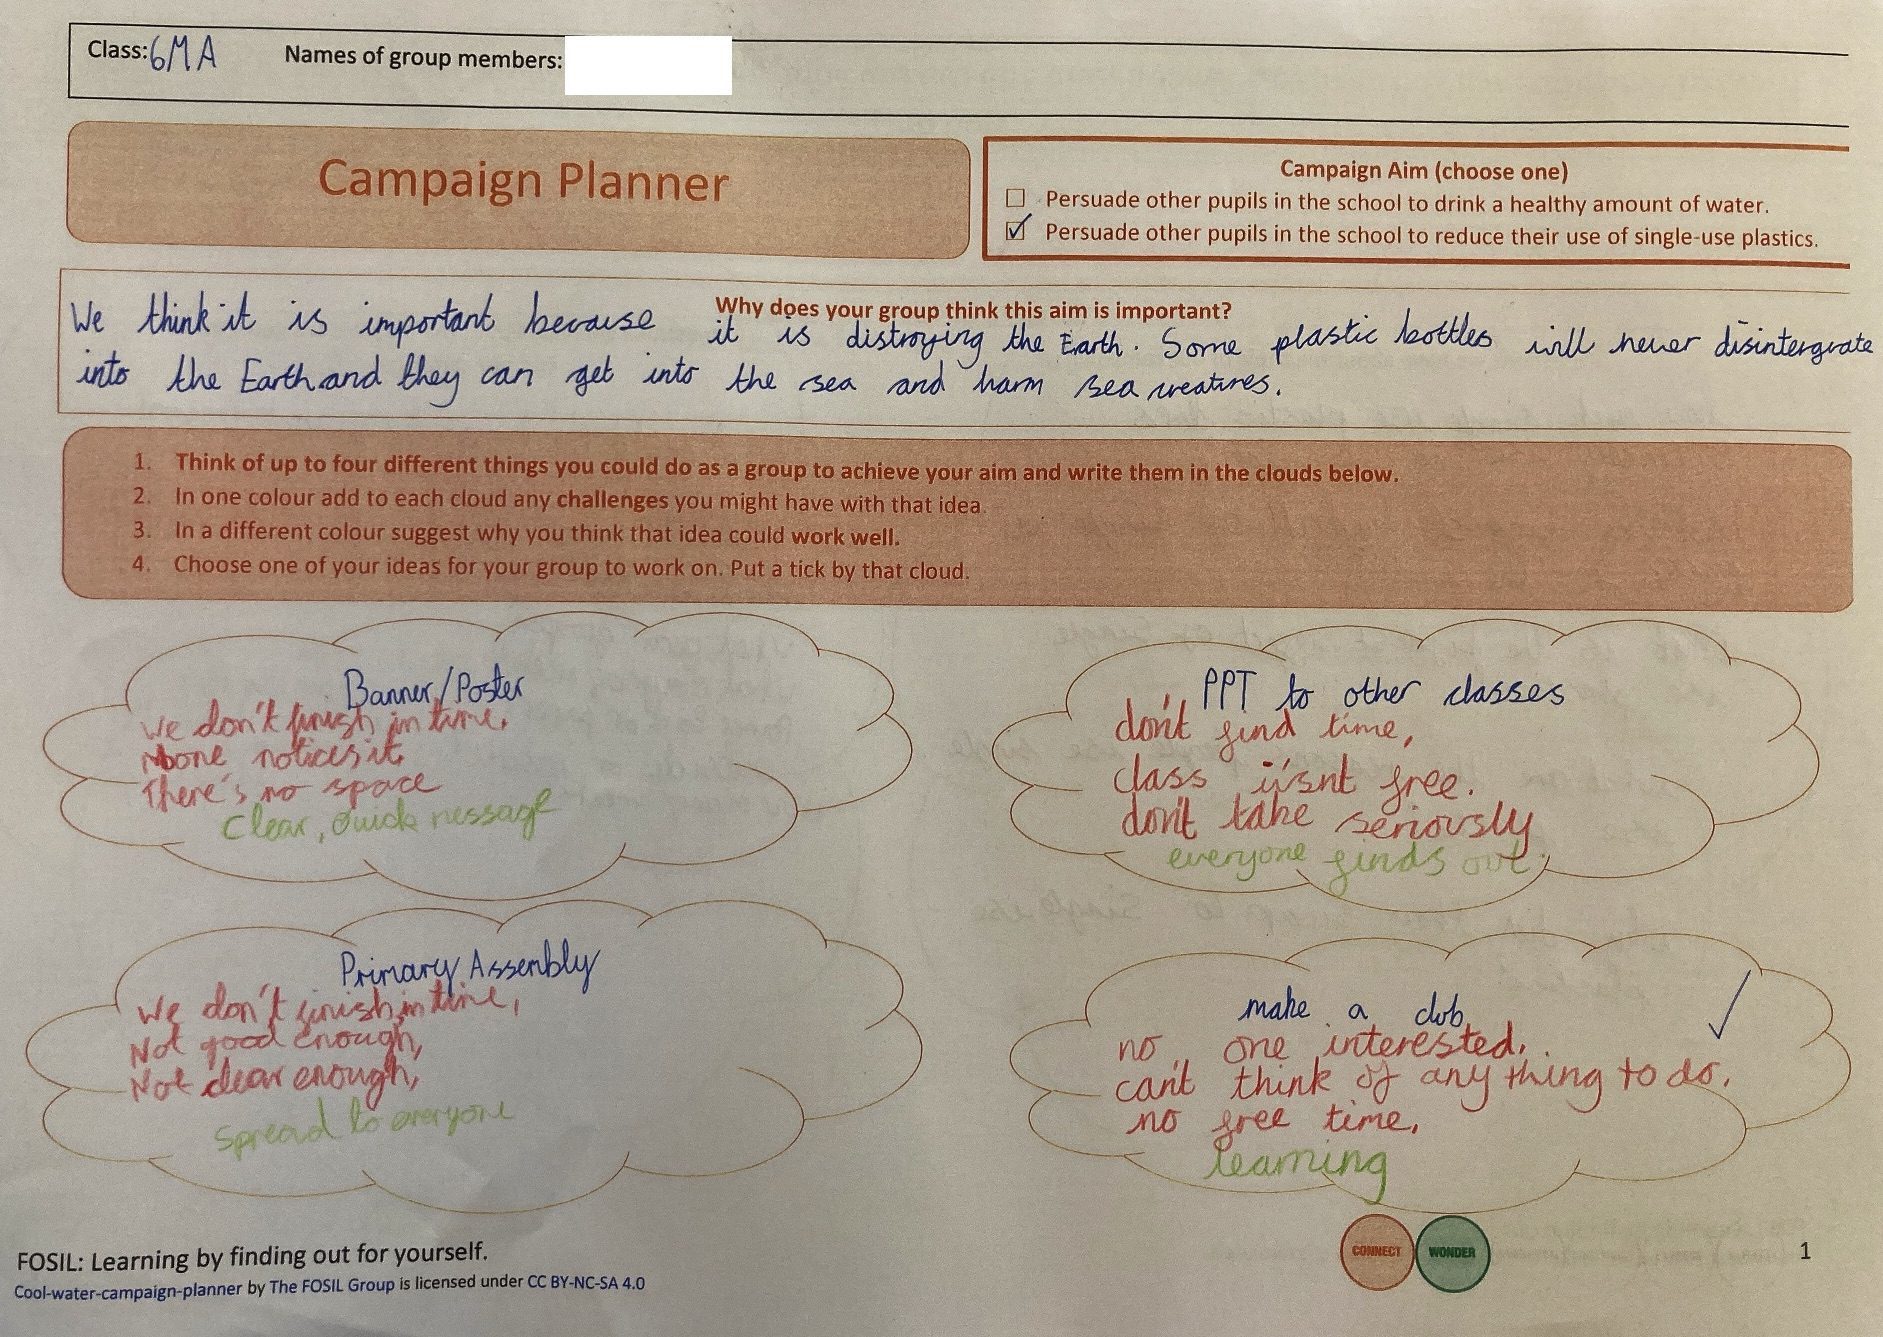 Class: 6MA Names of group members:
Campaign Planner
Campaign Aim (choose one)
Persuade other pupils in the school to drink a healthy amount of water.
Persuade other pupils in the school to reduce their use of single-use plastics.
Why does your group think this aim is important?
We think it is important because it is distroying the Earth. Some plastic bottles will never disintergrate
into the Earth and they can get into the sea and harm sea creatures.
1. Think of up to four different things you could do as a group to achieve your aim and write them in the clouds below.
2. In one colour add to each cloud any challenges you might have with that idea.
3. In a different colour suggest why you think that idea could work well.
4. Choose one of your ideas for your group to work on. Put a tick by that cloud.
Banner/Poster
We don't finish in time,
Noone notices it,
There's no space
Clear, quick message
PPT to other classes
don't find time,
class isn't free.
don't take seriously
everyone finds out.
Primary Assembly
We don't finish in time,
Not good enough,
Not clear enough,
Spread to everyone
make a club
no one interested,
can't think of anything to do,
no free time,
learning
FOSIL: Learning by finding out for yourself.
Cool-water-campaign-planner by The FOSIL Group is licensed under CC BY-NC-SA 4.0
CONNECT WONDER
1